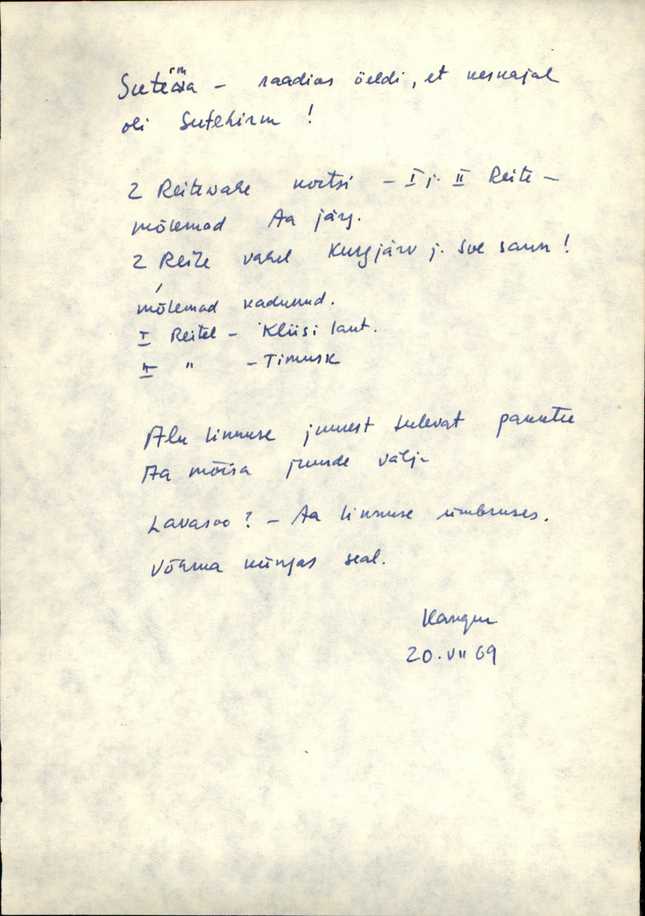 Suteõrma – raadios öeldi, et keskajal
oli Sutehirm !
2 Reitevahe kõrtsi – I j. II Reite –
mõlemad Aa järg.
2 Reite vahel Kurgjärv j. soe saun !
mõlemad kadunud.
I Reitel – Kliisi laut.
II " – Timusk
Alu linnuse juurest tulevat
Aa mõisa juurde välja
Lavasoo ? – Aa linnuse ümbruses.
Võhma küngas seal.
Kangur
20.VII 69